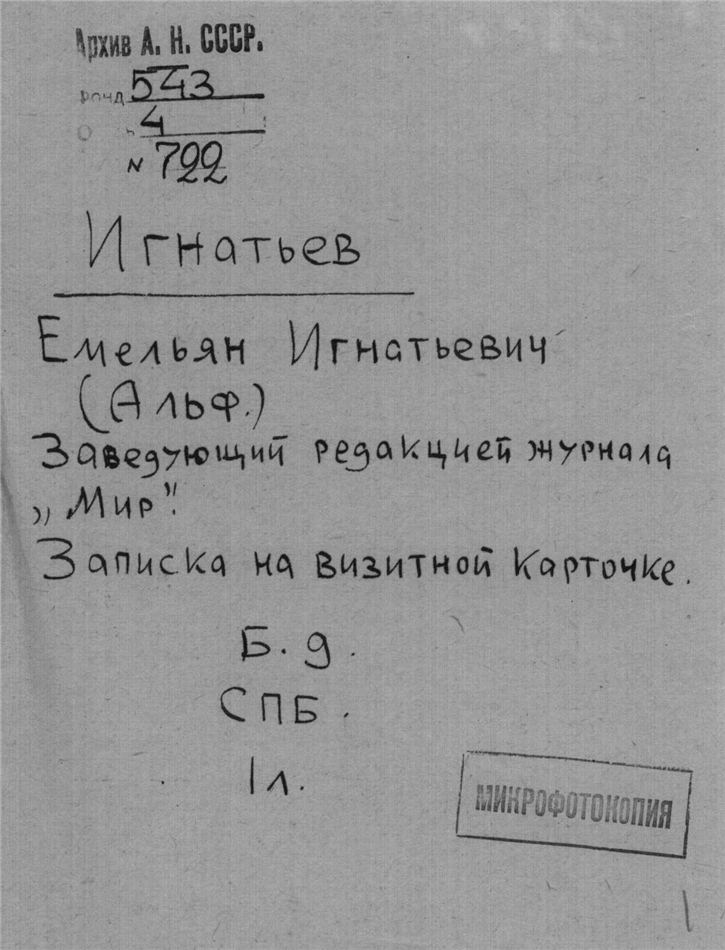 Архив А. Н. СССР.
фонд 543
4
N 722
Игнатьев
Емельян Игнатьевич
(Альф.)
Заведующий редакцией журнала
„Мир".
Записка на визитной карточке.
Б. д.
СПБ.
1 л.
МИКРОФОТОКОПИЯ